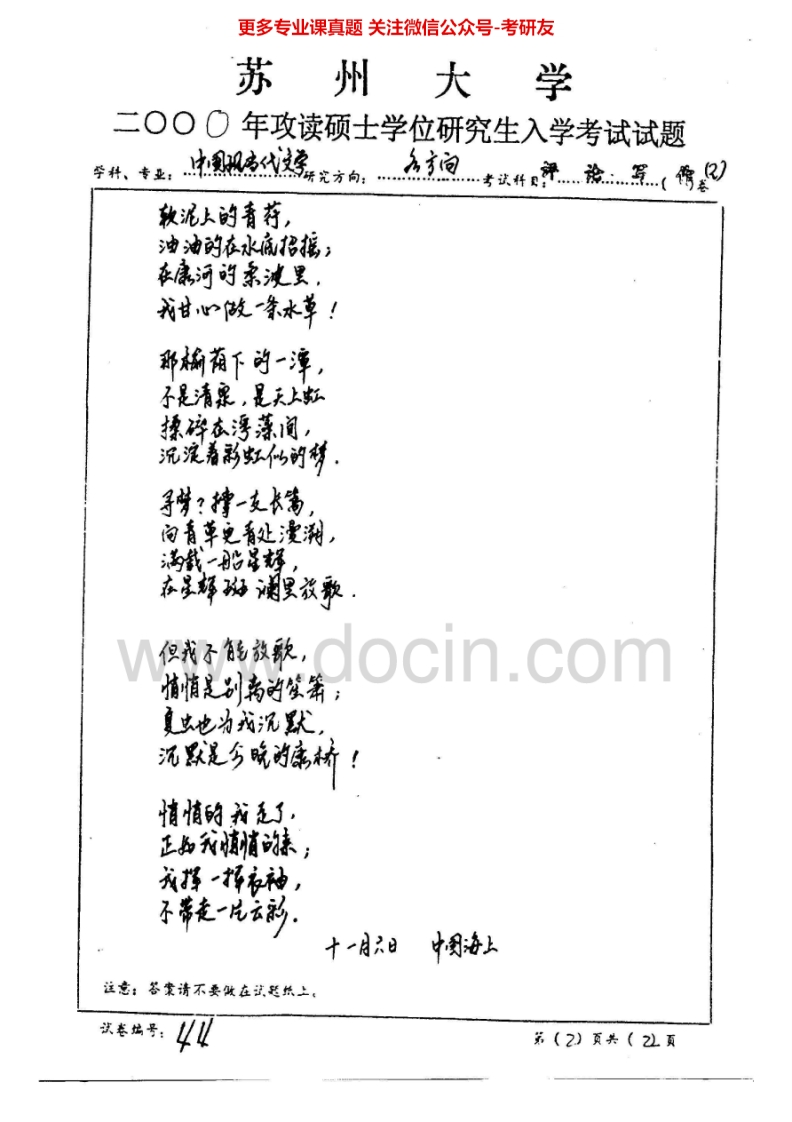 更多专业课真题 关注微信公众号-考研友
苏州大学
二〇〇〇年攻读硕士学位研究生入学考试试题
学科、专业：中国现当代文学 研究方向：各方向 考试科目：评论写（ 卷）(2)
软泥上的青荇，
油油的在水底招摇；
在康河的柔波里，
我甘心做一条水草！
那榆荫下的一潭，
不是清泉，是天上虹
揉碎在浮藻间，
沉淀着彩虹似的梦．
寻梦？撑一支长篙，
向青草更青处漫溯，
满载一船星辉，
在星辉斑斓里放歌．
www.docin.com
但我不能放歌，
悄悄是别离的笙箫；
夏虫也为我沉默，
沉默是今晚的康桥！
悄悄的我走了，
正如我悄悄的来；
我挥一挥衣袖，
不带走一片云彩．
十一月六日 中国海上
注意：答案请不要做在试题纸上。
试卷编号：44
第（2）页共（2）页